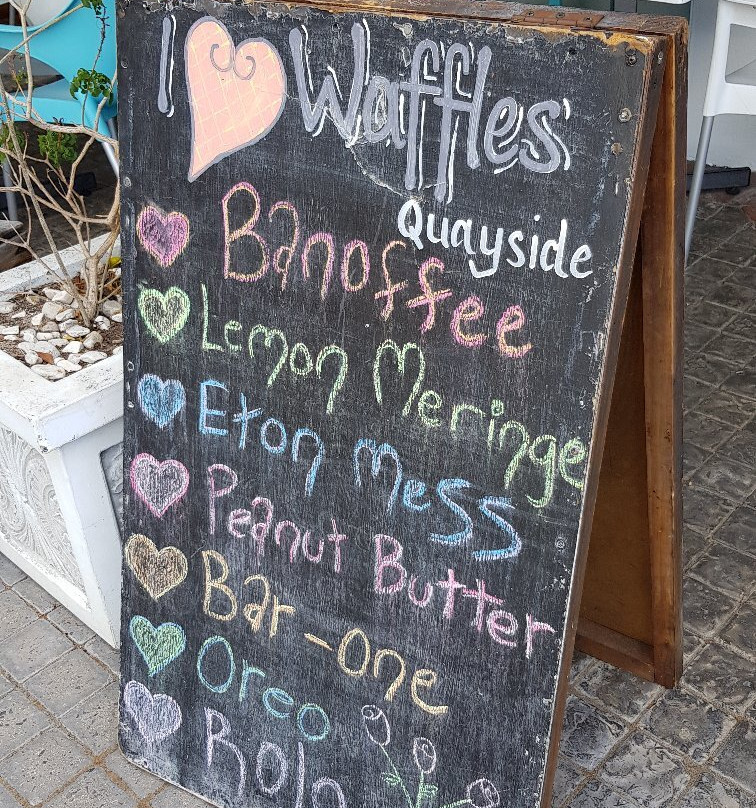 I Waffles
Quayside
Banoffee
Lemon Meringe
Eton Mess
Peanut Butter
Bar-One
Oreo
Rolo